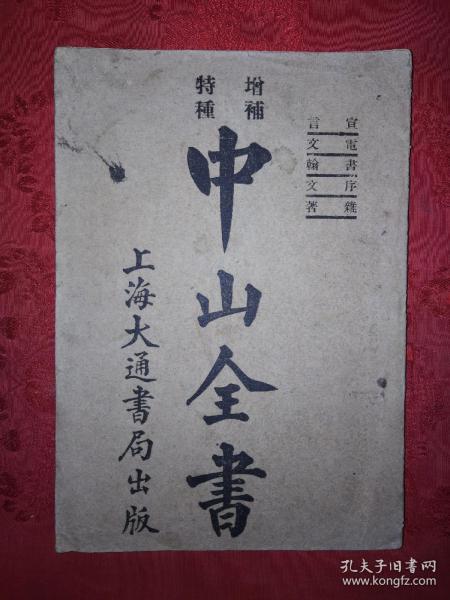 宣言
電文
書翰
序文
雜著
增補
特種
中山全書
上海大通書局出版
孔夫子旧书网
www.kongfz.com